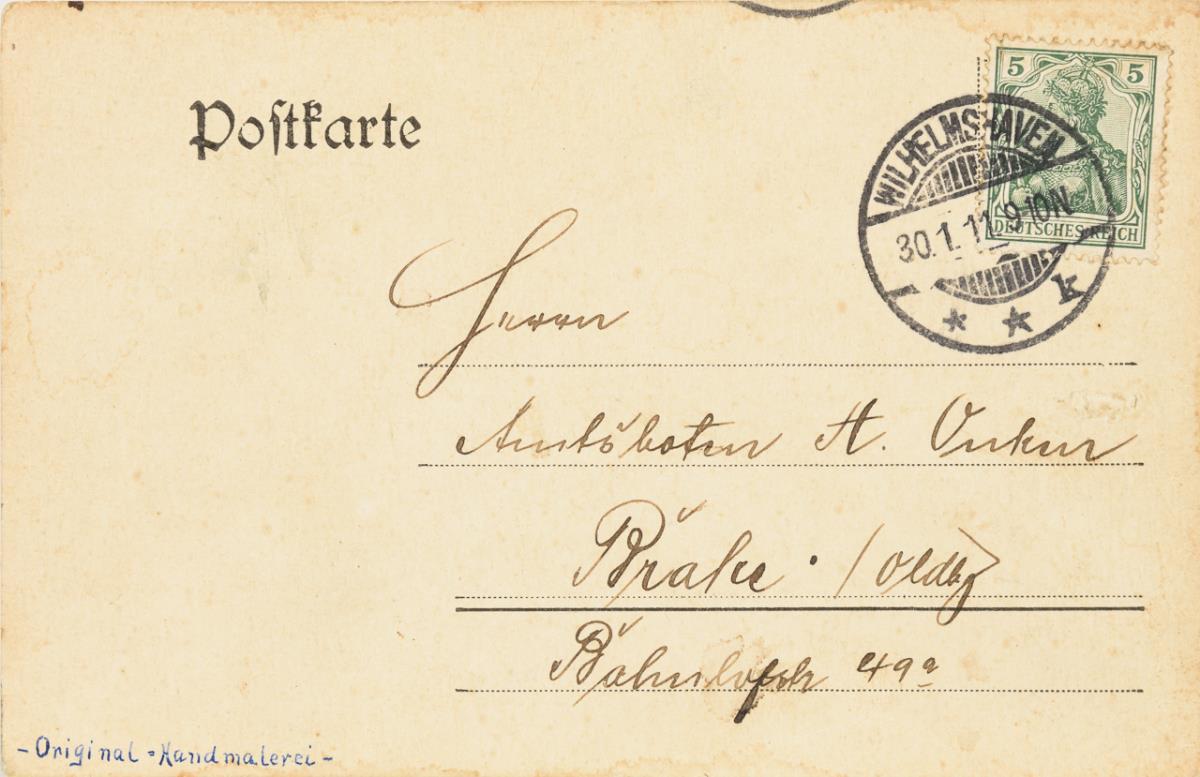 Postkarte
5 5
DEUTSCHES REICH
WILHELMSHAVEN
30.1.11. 9-10N.
* * k
Herrn
Amtsboten H. Onken
Brake . / Oldbg
Bahnhofstr 49a
- Original-Handmalerei -